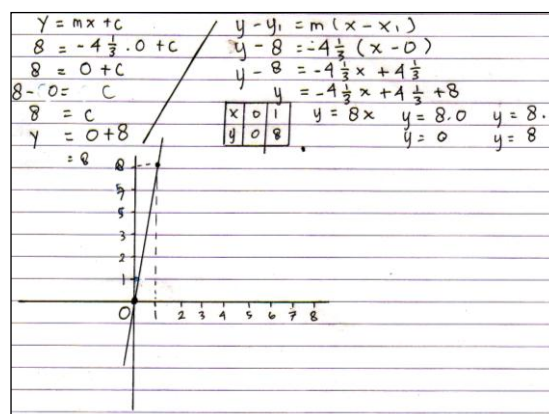 y = mx + c
8 = -4 1/3 . 0 + c
8 = 0 + c
8 - 0 = c
8 = c
y = 0 + 8
= 8
y - y₁ = m (x - x₁)
y - 8 = -4 1/3 (x - 0)
y - 8 = -4 1/3 x + 4 1/3
y = -4 1/3 x + 4 1/3 + 8
x 0 1
y 0 8
y = 8x y = 8.0 y = 8.
y = 0 y = 8
8
5
3
2
1
0 1 2 3 4 5 6 7 8